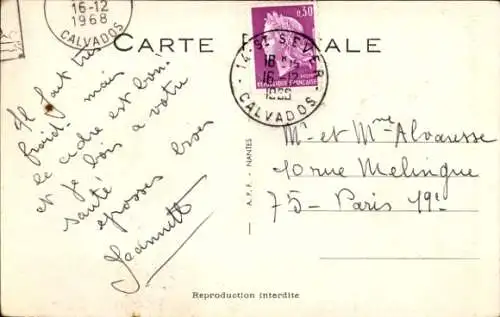 16-12
1968
CALVADOS
CARTE P TALE
0,30
REPUBLIQUE FRANÇAISE
14 ST SEVER
18 H
16-12
1968
CALVADOS
Il fait très
froid. mais
le cadre est bon.
et je bois à votre
santé
grosses bises
Jeannette
A.P.P. - NANTES
Mr et Mme Alvaresse
10 rue Melingue
75 - Paris 19e
Reproduction interdite